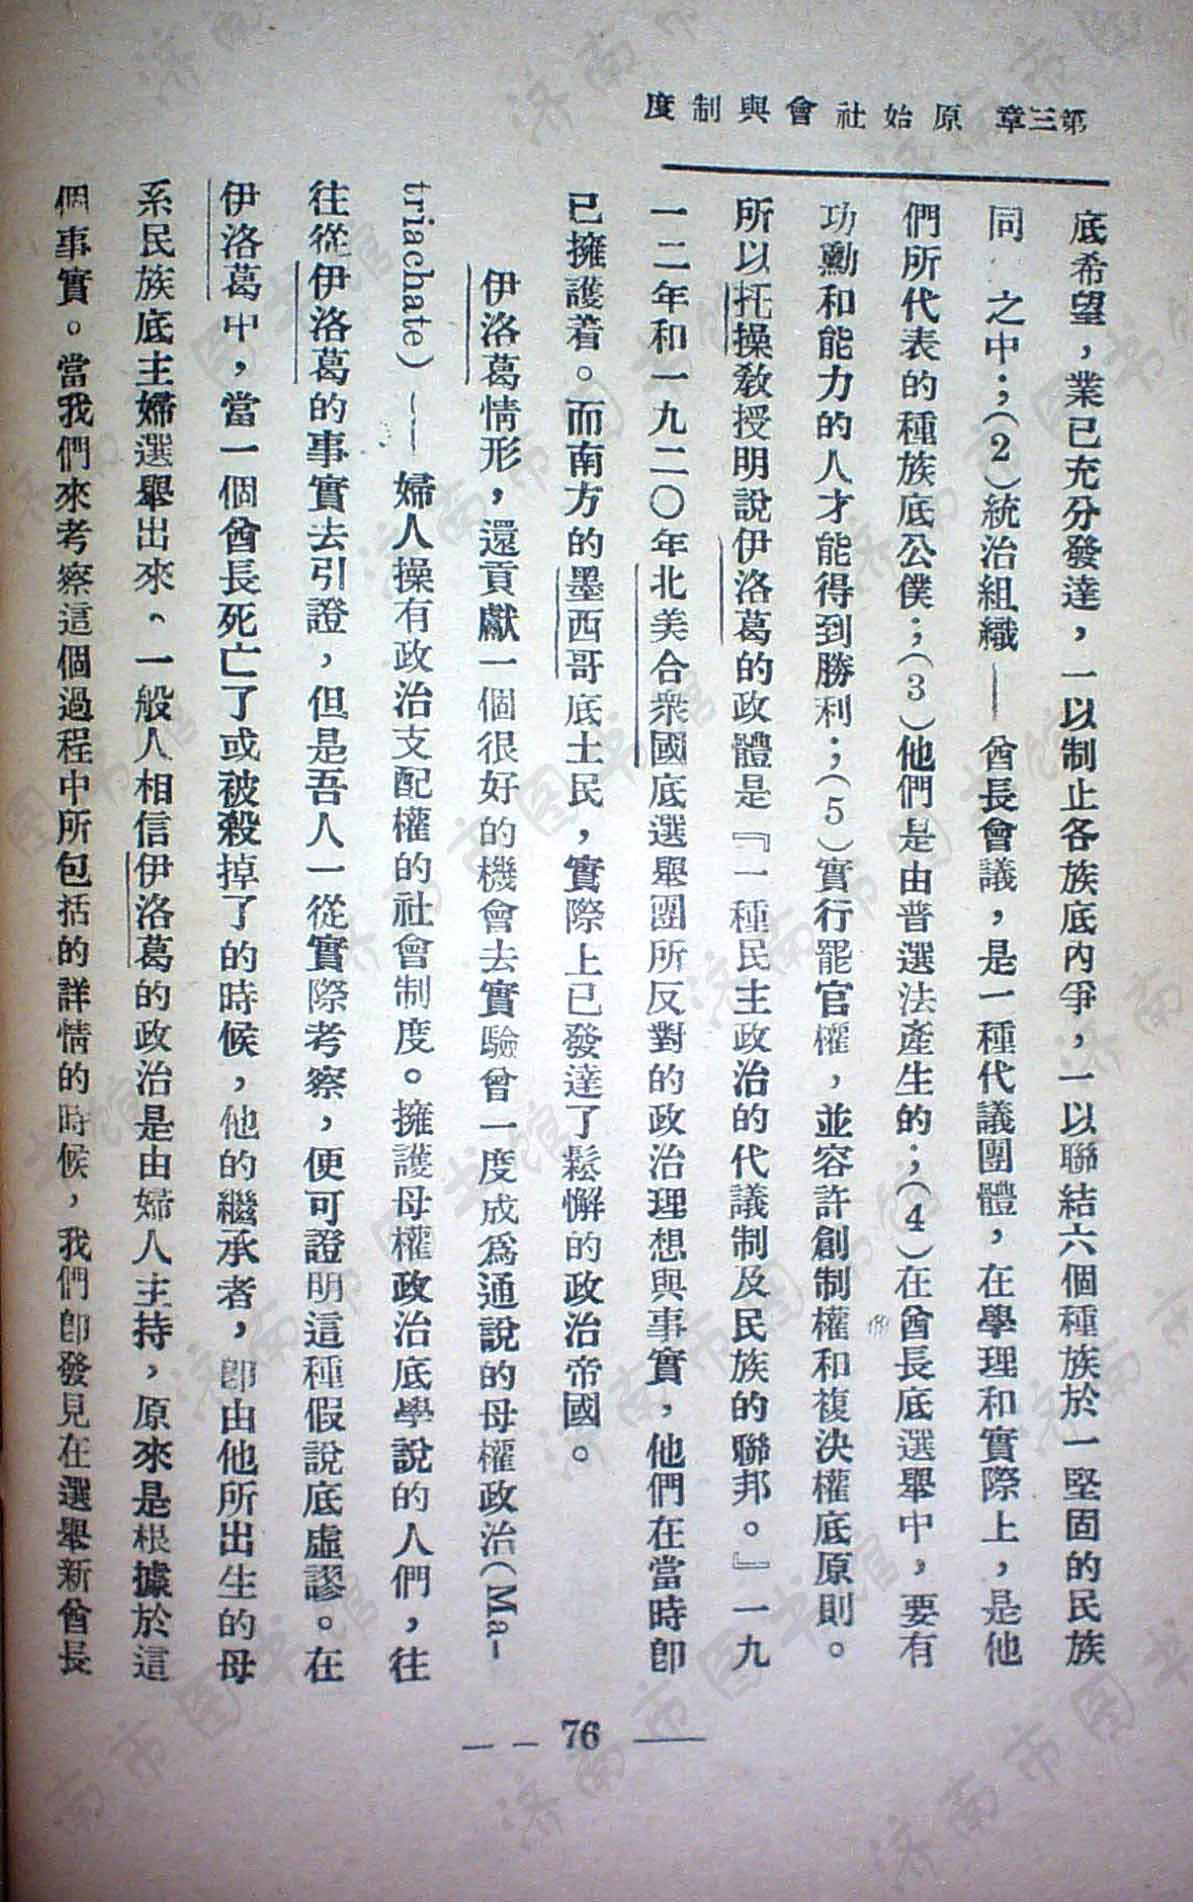 第三章 原始社會與制度
底希望，業已充分發達，一以制止各族底內爭，一以聯結六個種族於一堅固的民族
同 之中；(2)統治組織——酋長會議，是一種代議團體，在學理和實際上，是他
們所代表的種族底公僕；(3)他們是由普選法產生的；(4)在酋長底選舉中，要有
功勳和能力的人才能得到勝利；(5)實行罷官權，並容許創制權和複決權底原則。
所以托操教授明說伊洛葛的政體是『一種民主政治的代議制及民族的聯邦。』一九
一二年和一九二〇年北美合衆國底選舉團所反對的政治理想與事實，他們在當時卽
已擁護着。而南方的墨西哥底土民，實際上已發達了鬆懈的政治帝國。
伊洛葛情形，還貢獻一個很好的機會去實驗曾一度成爲通說的母權政治(Ma-
triachate)——婦人操有政治支配權的社會制度。擁護母權政治底學說的人們，往
往從伊洛葛的事實去引證，但是吾人一從實際考察，便可證明這種假說底虛謬。在
伊洛葛中，當一個酋長死亡了或被殺掉了的時候，他的繼承者，卽由他所出生的母
系民族底主婦選舉出來、一般人相信伊洛葛的政治是由婦人主持，原來是根據於這
個事實。當我們來考察這個過程中所包括的詳情的時候，我們卽發見在選舉新酋長
76
济南市图书馆